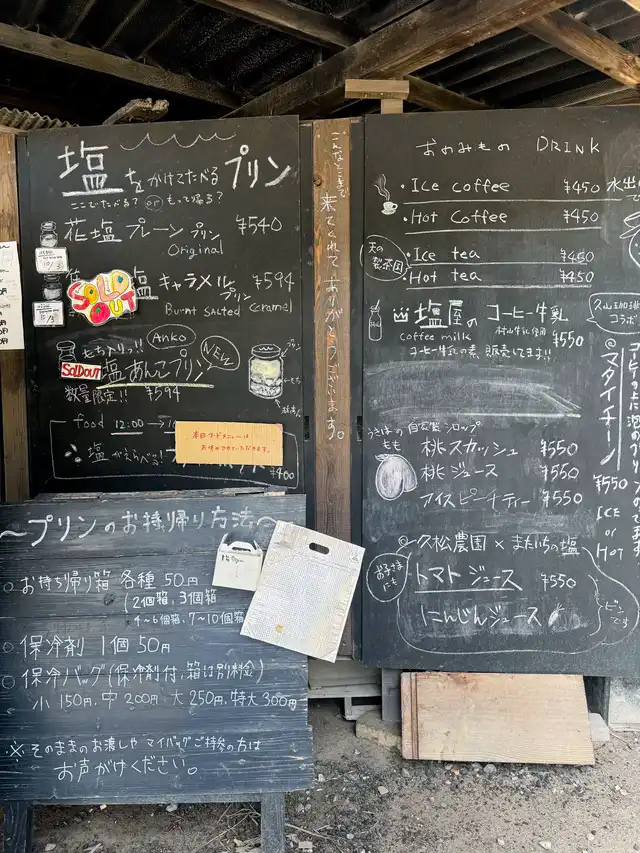 塩をかけてたべるプリン
ここでたべる? or もって帰る?
花塩プレーンプリン ¥540
Original
塩キャラメルプリン ¥594
SOLD OUT
Burnt salted caramel
Anko
NEW
SOLDOUT
塩あんこプリン
数量限定!! ¥594
food 12:00→
塩
¥400
本日フードメニューは
お休みさせていただきます。
こんなとこまで
来てくれてありがとうございます。
〜プリンのお持帰り方法〜
○お持ち帰り箱 各種 50円
(2個箱、3個箱
4〜6個箱、7〜10個箱
○保冷剤 1個 50円
○保冷バッグ(保冷剤付、箱は別料金)
小 150円、中 200円 大 250円、特大 300円
※そのままのお渡しや マイバッグご持参の方は
お声がけください。
おのみもの DRINK
・Ice coffee ¥450
・Hot coffee ¥450
天の製茶園
・Ice tea ¥450
・Hot tea ¥450
塩屋のコーヒー牛乳
coffee milk 村山牛乳使用 ¥550
コーヒー牛乳の素 販売してます!!
うきはの自家製シロップ
もも
桃スカッシュ ¥550
桃ジュース ¥550
アイスピーチティー ¥550
久松農園×またいちの塩
お子さまにも
トマトジュース ¥550
にんじんジュース
ビンです
水出
コラボ
@マスタイチーノ
¥550
ICE
or
HOT